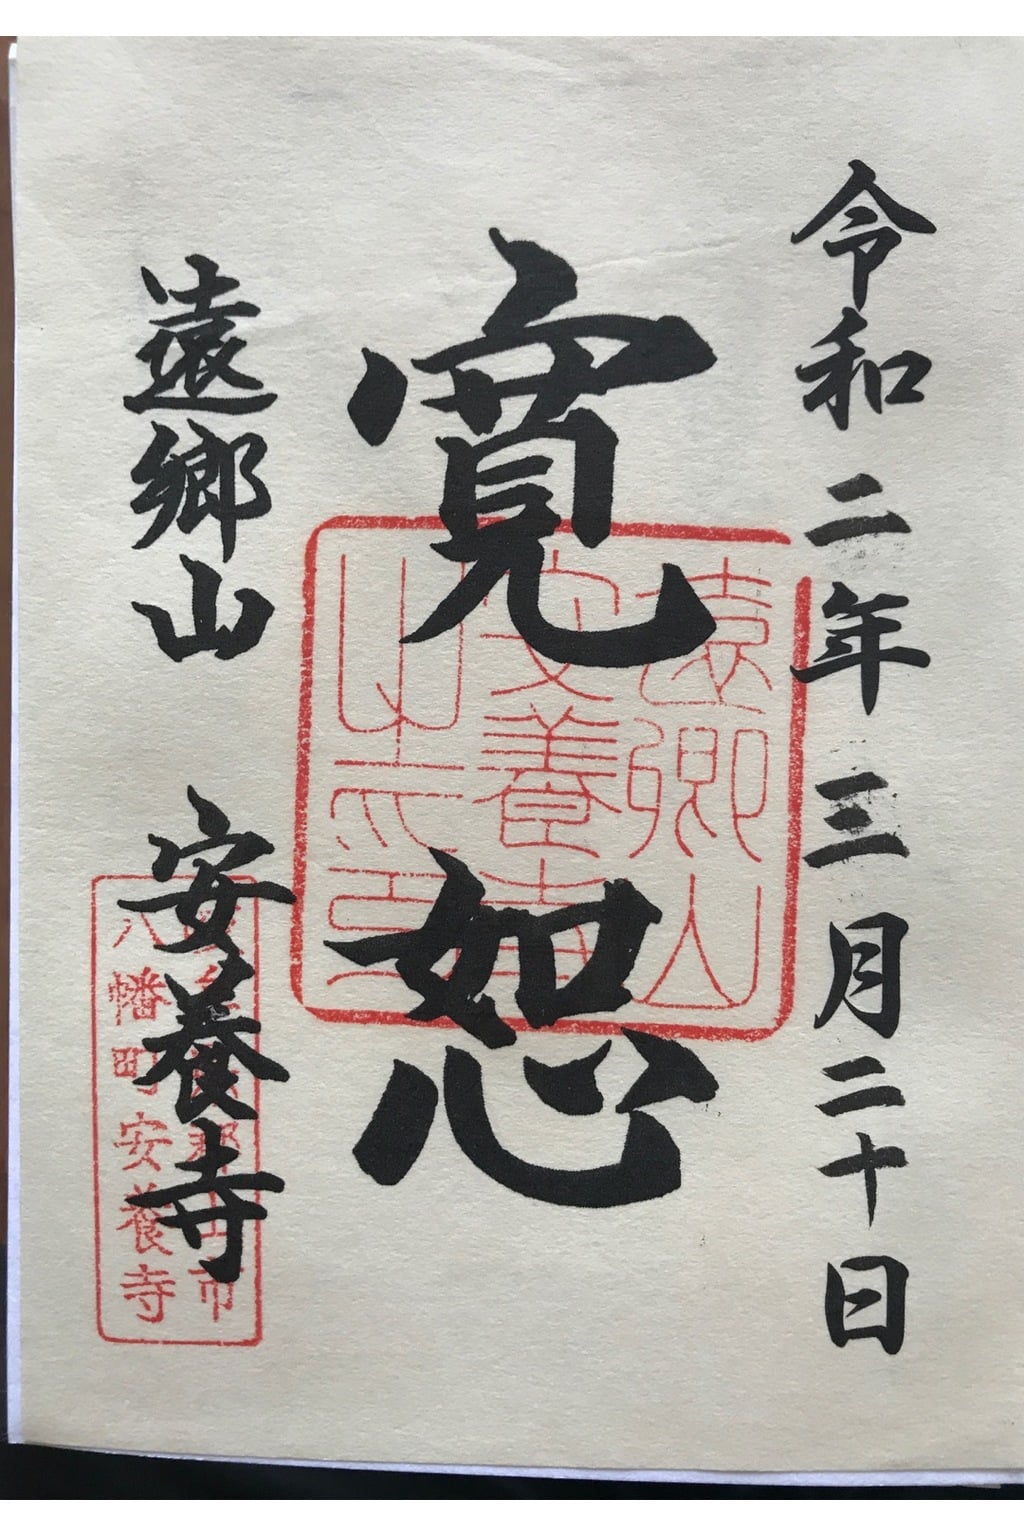 令和二年三月二十日
寛恕
遠郷山 安養寺
遠郷山
安養寺
山之印
八幡町安養寺